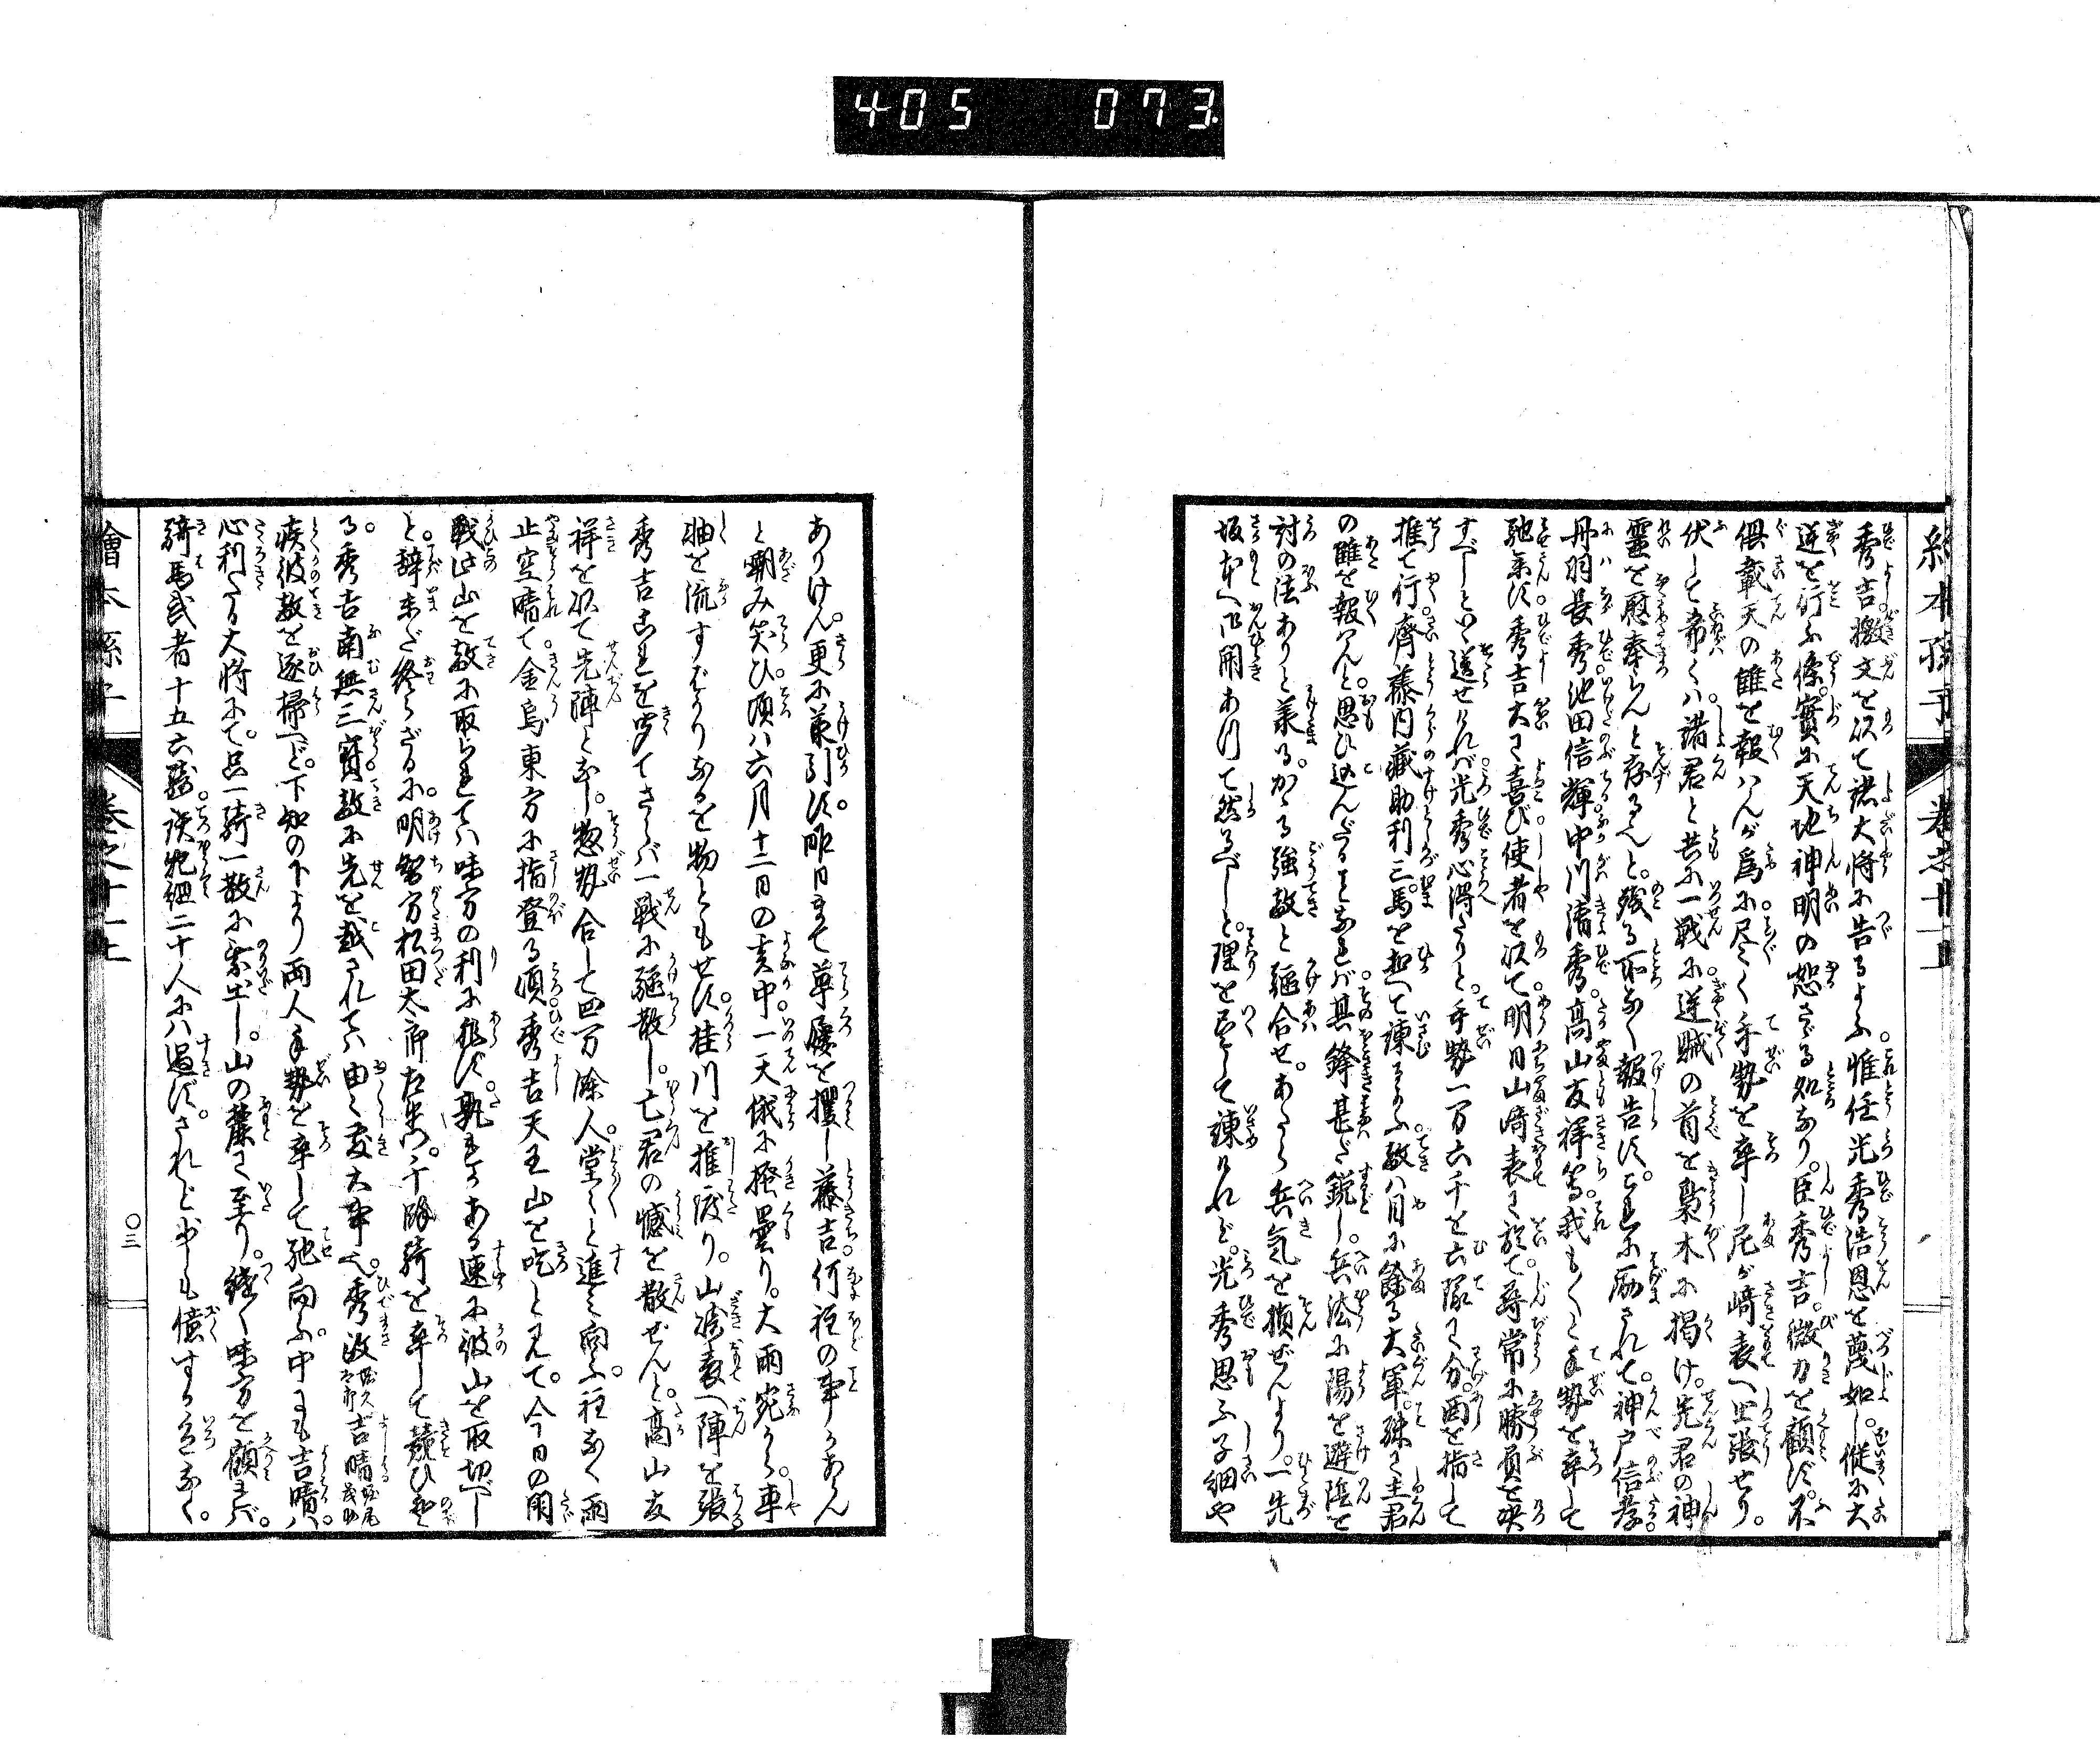 405 073
繪本孫子
巻之十一上
秀吉檄文を以て諸大将に告るよふ。惟任光秀浩恩を蔑如し。縦に大
逆を行ふ條。實に天地神明の恕さゞる処なり。臣秀吉。微力を顧ず。不
倶戴天の讎を報はんが為に。尽く手勢を率し尼が崎表へ出張せり。
伏して希くは。諸君と共に一戦に。逆賊の首を梟木に掲け。先君の神
靈を慰奉らんと存るなりと。残る所なく報告ず。これに励されて。神戸信孝。
丹羽長秀。池田信輝。中川清秀。高山友祥等。我も〱と手勢を率して
馳集ず。秀吉大に喜び使者を以て。明日山崎表に於て尋常に勝負を决
すべしといひ送せければ。光秀心得たりと。手勢一万六千を六隊に分。西を指して
推て行。齋藤内藏助利三。馬を扣へて諫るよふ。敵は目に餘る大軍。殊に主君
の讎を報はんと。思ひ込んだる事なれば。其鋒甚だ鋭し。兵法に陽を避陰を
討の法ありと美る。かゝる強敵と駈合せ。あたら兵気を損ぜんより。一先
坂本へ御開あつて然るべしと。理を尽して諫けれど。光秀思ふ子細や
ありけん。更に承引ず。昨日まで草履を攫し藤吉。何程の事かあらん
と嘲み笑ひ。頃は六月十二日の夜中。一天俄に掻曇り。大雨宛ら。車
軸を流すばかりなるを物ともせず。桂川を推渡り。山崎表へ陣を張。
秀吉これを聞てさらば一戦に駈散し。亡君の憾を散ぜんと。高山友
祥を以て先陣となし。惣勢合して四万餘人。堂〱と進み向ふ。程なく雨
止空晴て。金烏東方に指登る頃。秀吉天王山を吃と見て。今日の闘
戦此山を敵に取られては味方の利に非ず。孰れかある速に彼山を取切べし
と。辞未だ終らざるに。明智方松田太郎左衛門。千餘騎を率して競ひ登
る。秀吉南無三寳。敵に先を越されては由〻敷大事也。秀政堀久太郎吉晴堀尾茂助
疾彼敵を逐掃へと。下知の下より両人手勢を率して馳向ふ。中にも吉晴は。
心利たる大将にて。只一騎一散に乗出し。山の麓に至り。續く味方を顧れば。
騎馬武者十五六騎。鉄炮組二十人には過ず。されど少しも憶する色なく。
繪本孫子
巻之十一上
〇三